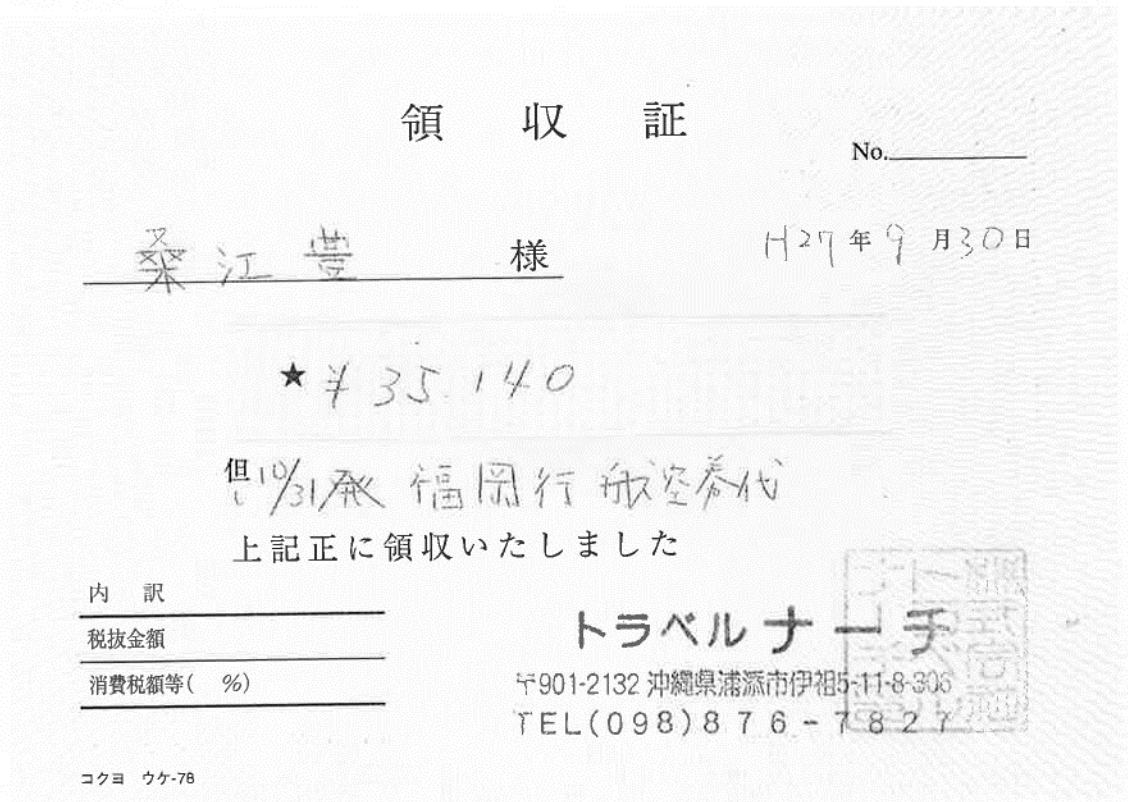 領収証
No.
桑江豊 様
H27年9月30日
★¥35,140
但し 10/31発 福岡行 航空券代
上記正に領収いたしました
内訳
税抜金額
消費税額等( %)
トラベルナーチ
〒901-2132 沖縄県浦添市伊祖5-11-8-306
TEL(098)876-7827
コクヨ ウケ-78